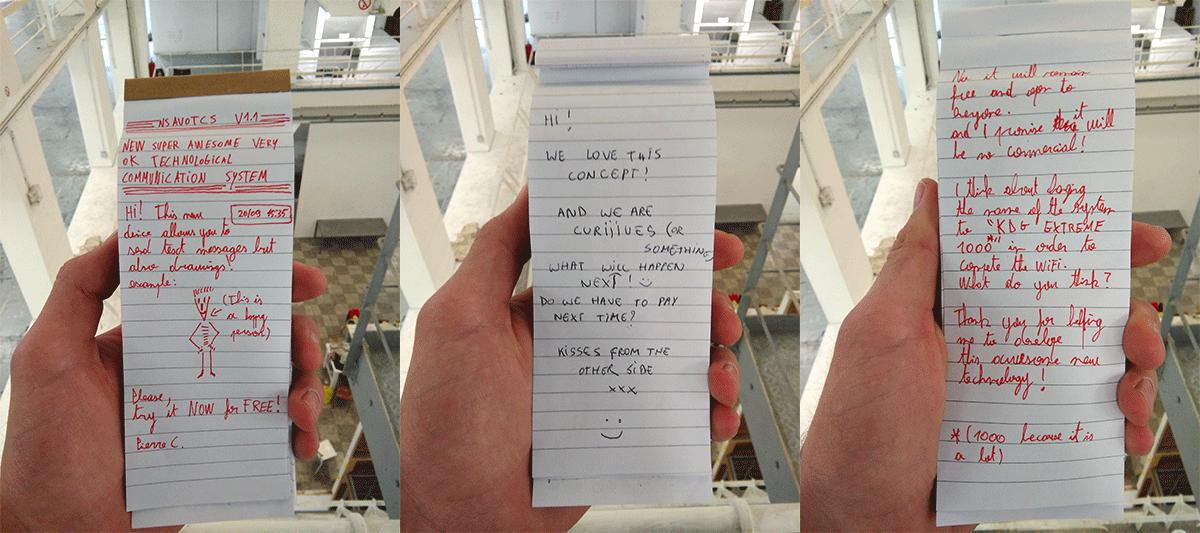 NSAVOTCS V1.1
NEW SUPER AWESOME VERY
OK TECHNOLOGICAL
COMMUNICATION SYSTEM
20/09 15:35
Hi! This new
device allows you to
send text messages but
also drawings!
example:
(This is
a happy
person)
Please,
try it NOW for FREE!
Pierre C.
HI!
WE LOVE THIS
CONCEPT!
AND WE ARE
CURIJIVES (OR
SOMETHING)
WHAT WILL HAPPEN
NEXT!
DO WE HAVE TO PAY
NEXT TIME?
KISSES FROM THE
OTHER SIDE
xxx
No it will remain
free and open to
everyone.
and I promise it will
be no commercial!
I think about changing
the name of the system
to "KDG EXTREME
1000*" in order to
compete the WiFi.
What do you think?
Thank you for helping
me to develop
this awesome new
technology!
*(1000 because it is
a lot)